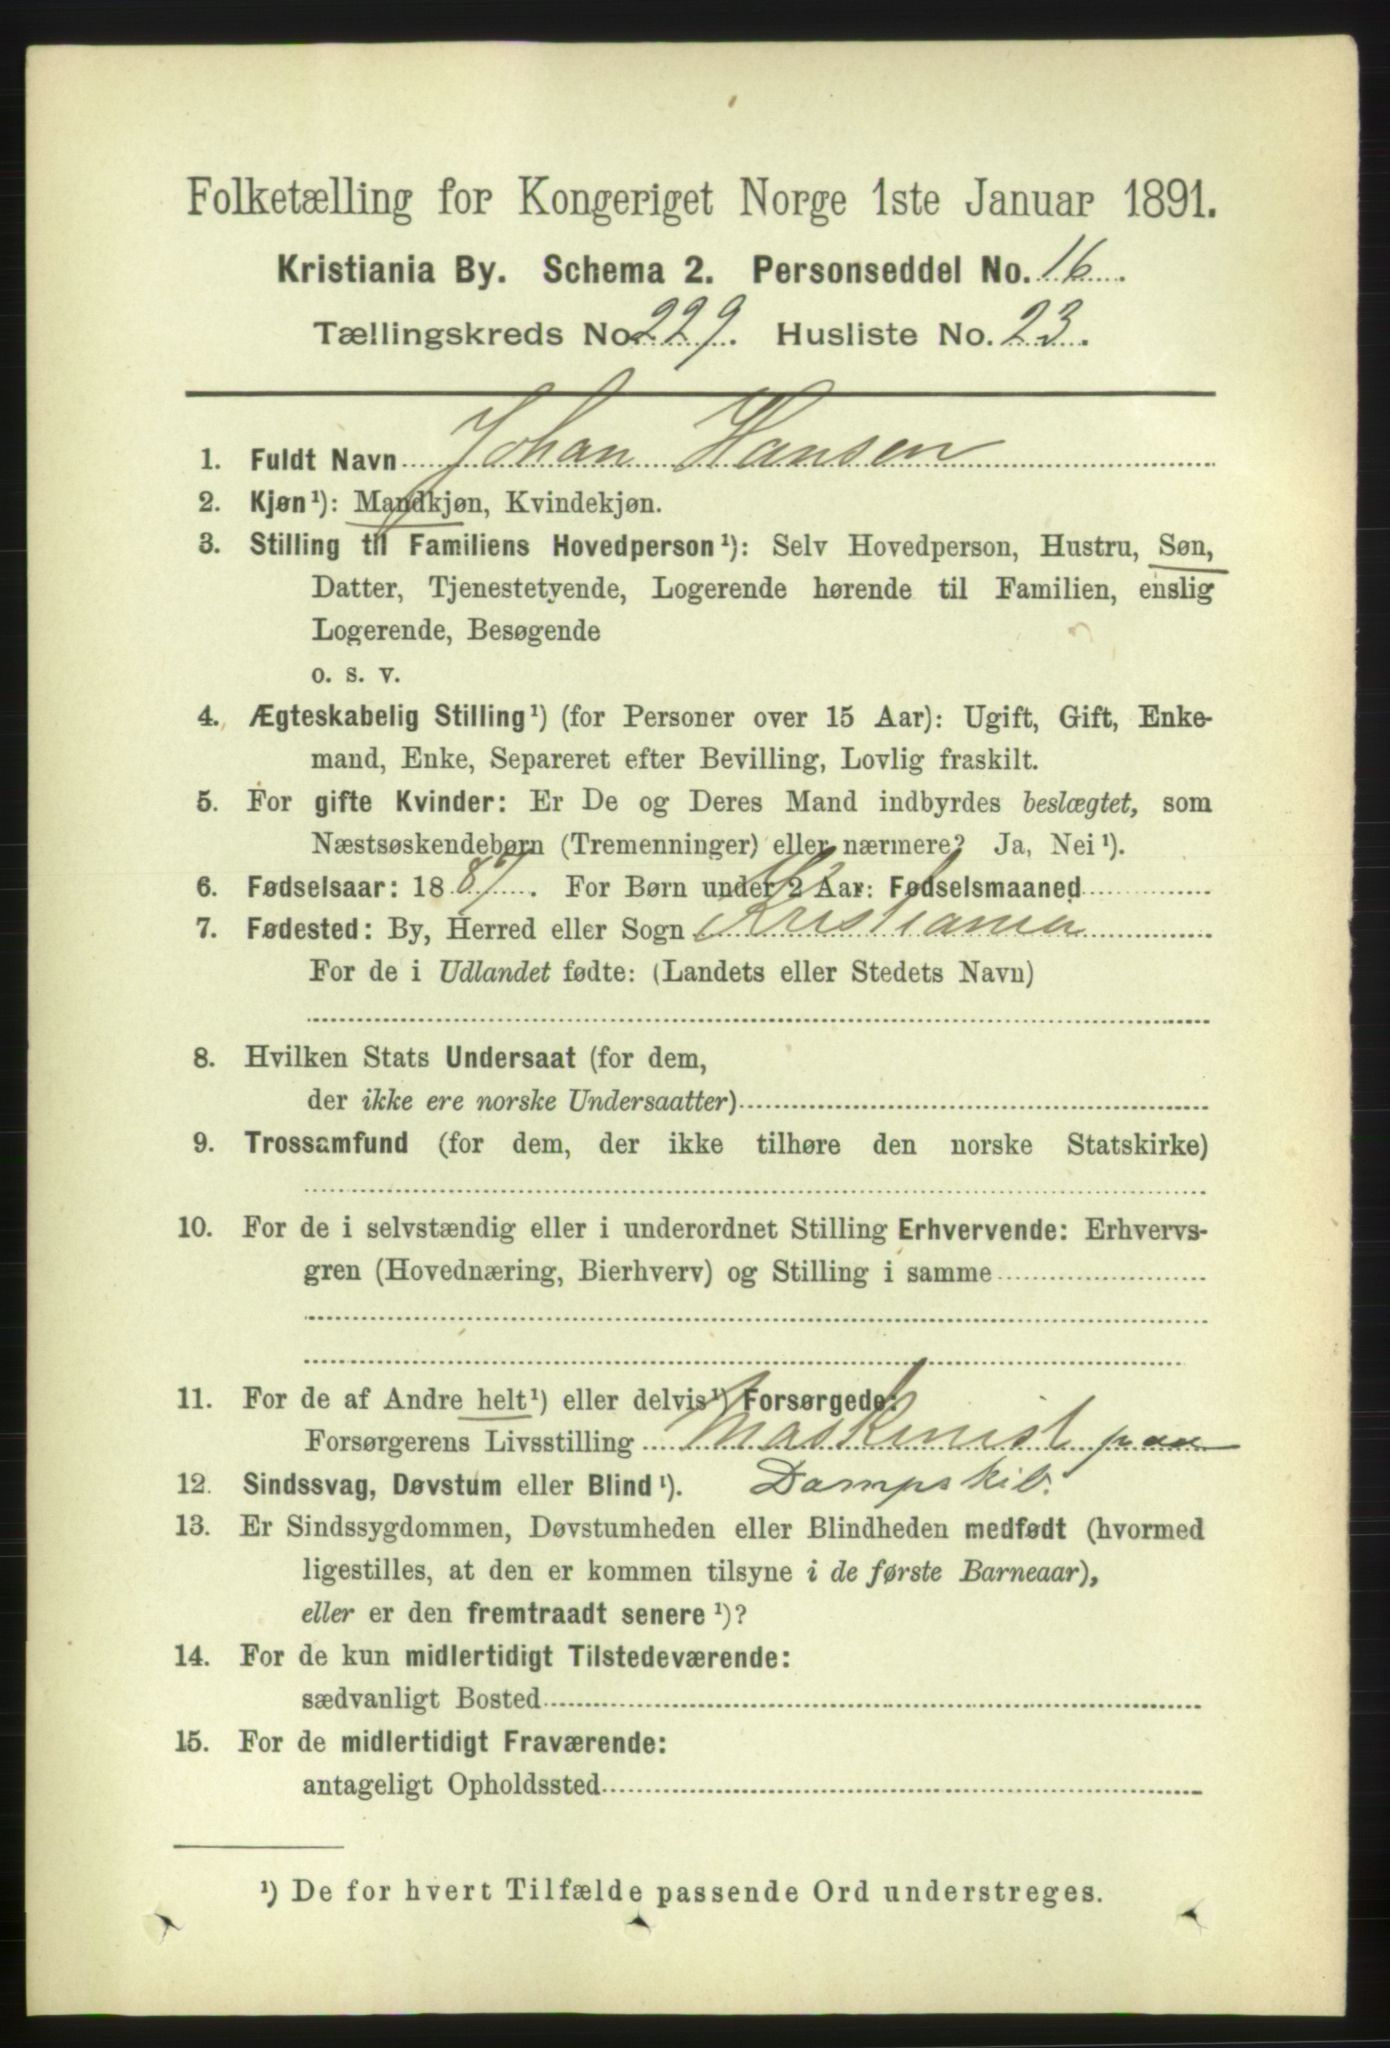 Folketælling for Kongeriget Norge 1ste Januar 1891.
Kristiania By. Schema 2. Personseddel No. 16.
Tællingskreds No. 229. Husliste No. 23.
1. Fuldt Navn Johan Hansen
2. Kjøn¹): Mandkjøn, Kvindekjøn.
3. Stilling til Familiens Hovedperson¹): Selv Hovedperson, Hustru, Søn,
Datter, Tjenestetyende, Logerende hørende til Familien, enslig
Logerende, Besøgende
o. s. v.
4. Ægteskabelig Stilling¹) (for Personer over 15 Aar): Ugift, Gift, Enke-
mand, Enke, Separeret efter Bevilling, Lovlig fraskilt.
5. For gifte Kvinder: Er De og Deres Mand indbyrdes beslægtet, som
Næstsøskendebørn (Tremenninger) eller nærmere? Ja, Nei¹).
6. Fødselsaar: 1887. For Børn under 2 Aar: Fødselsmaaned
7. Fødested: By, Herred eller Sogn Kristiania
For de i Udlandet fødte: (Landets eller Stedets Navn)
8. Hvilken Stats Undersaat (for dem,
der ikke ere norske Undersaatter)
9. Trossamfund (for dem, der ikke tilhøre den norske Statskirke)
10. For de i selvstændig eller i underordnet Stilling Erhvervende: Erhvervs-
gren (Hovednæring, Bierhverv) og Stilling i samme
11. For de af Andre helt¹) eller delvis¹) Forsørgede:
Forsørgerens Livsstilling Maskinist paa
12. Sindssvag, Døvstum eller Blind¹). Dampskib.
13. Er Sindssygdommen, Døvstumheden eller Blindheden medfødt (hvormed
ligestilles, at den er kommen tilsyne i de første Barneaar),
eller er den fremtraadt senere¹)?
14. For de kun midlertidigt Tilstedeværende:
sædvanligt Bosted
15. For de midlertidigt Fraværende:
antageligt Opholdssted
¹) De for hvert Tilfælde passende Ord understreges.